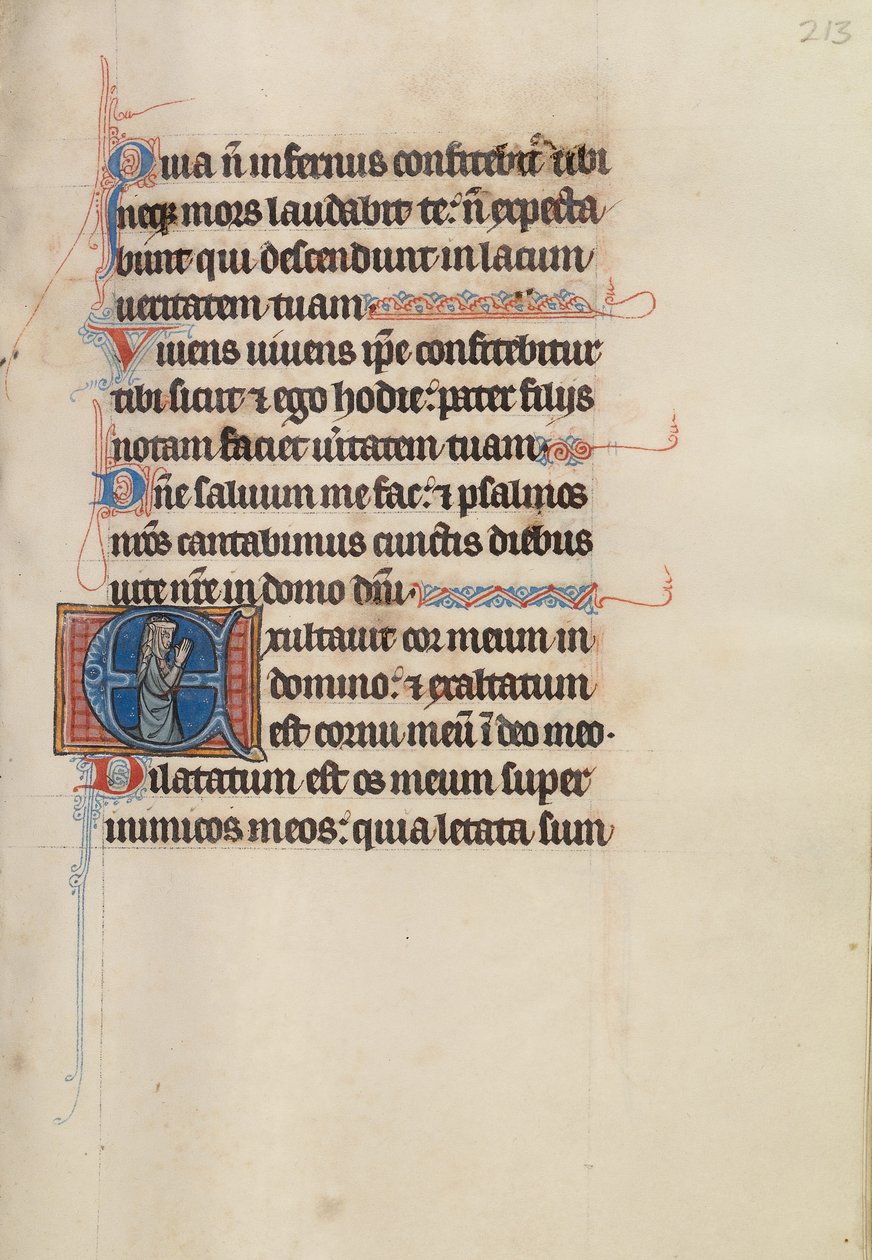 213
Quia n̄ infernus confitebit᷑ tibi
neq; mors laudabit te: n̄ expecta
bunt qui descendunt in lacum
ueritatem tuam
Viuens uiuens ip̄e confitebitur
tibi sicut ⁊ ego hodie: pater filijs
notam faciet ūitatem tuam
Dn̄e saluum me fac: ⁊ psalmos
nr̄os cantabimus cunctis diebus
uite nr̄e in domo dn̄i.
Exultauit cor meum in
domino: ⁊ exaltatum
est cornu meū ī deo meo.
Dilatatum est os meum super
inimicos meos: quia letata sum